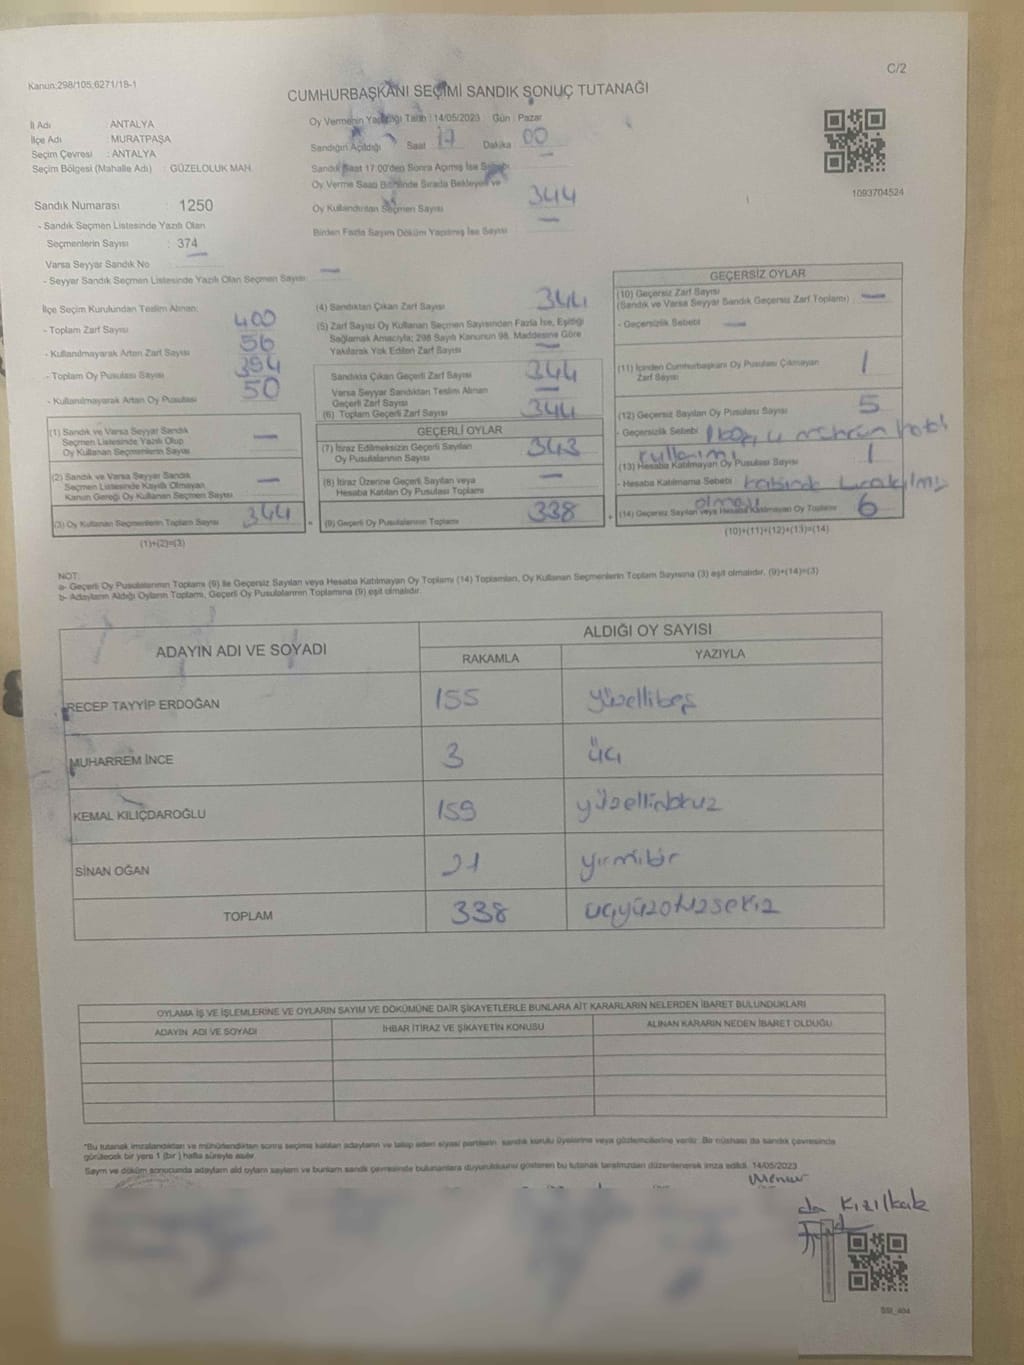 C/2
Kanun:298/105,6271/18-1
CUMHURBAŞKANI SEÇİMİ SANDIK SONUÇ TUTANAĞI
İl Adı : ANTALYA
İlçe Adı : MURATPAŞA
Seçim Çevresi : ANTALYA
Seçim Bölgesi (Mahalle Adı) : GÜZELOLUK MAH.
Oy Vermenin Yapıldığı Tarih : 14/05/2023 Gün : Pazar
Sandığın Açıldığı Saat 17 Dakika 00
Sandık Saat 17:00'den Sonra Açılmış İse Sebebi
Oy Verme Saati Bitiminde Sırada Bekleyen ve
Oy Kullandırılan Seçmen Sayısı 344
Birden Fazla Sayım Döküm Yapılmış İse Sayısı —
1093704524
Sandık Numarası 1250
- Sandık Seçmen Listesinde Yazılı Olan
Seçmenlerin Sayısı : 374
Varsa Seyyar Sandık No —
- Seyyar Sandık Seçmen Listesinde Yazılı Olan Seçmen Sayısı —
İlçe Seçim Kurulundan Teslim Alınan;
- Toplam Zarf Sayısı 400
- Kullanılmayarak Artan Zarf Sayısı 56
- Toplam Oy Pusulası Sayısı 394
- Kullanılmayarak Artan Oy Pusulası 50
(1) Sandık ve Varsa Seyyar Sandık
Seçmen Listesinde Yazılı Olup
Oy Kullanan Seçmenlerin Sayısı —
(2) Sandık ve Varsa Seyyar Sandık
Seçmen Listesinde Kayıtlı Olmayan,
Kanun Gereği Oy Kullanan Seçmen Sayısı —
(3) Oy Kullanan Seçmenlerin Toplam Sayısı 344
(1)+(2)=(3)
(4) Sandıktan Çıkan Zarf Sayısı 344
(5) Zarf Sayısı Oy Kullanan Seçmen Sayısından Fazla İse, Eşitliği
Sağlamak Amacıyla; 298 Sayılı Kanunun 98. Maddesine Göre
Yakılarak Yok Edilen Zarf Sayısı —
Sandıkta Çıkan Geçerli Zarf Sayısı 344
Varsa Seyyar Sandıktan Teslim Alınan
Geçerli Zarf Sayısı —
(6) Toplam Geçerli Zarf Sayısı 344
GEÇERLİ OYLAR
(7) İtiraz Edilmeksizin Geçerli Sayılan
Oy Pusulalarının Sayısı 343
(8) İtiraz Üzerine Geçerli Sayılan veya
Hesaba Katılan Oy Pusulası Toplamı —
(9) Geçerli Oy Pusulalarının Toplamı 338
GEÇERSİZ OYLAR
(10) Geçersiz Zarf Sayısı
(Sandık ve Varsa Seyyar Sandık Geçersiz Zarf Toplamı) —
- Geçersizlik Sebebi —
(11) İçinden Cumhurbaşkanı Oy Pusulası Çıkmayan
Zarf Sayısı 1
(12) Geçersiz Sayılan Oy Pusulası Sayısı 5
- Geçersizlik Sebebi 1 boş, 4 mührün hatalı
kullanımı
(13) Hesaba Katılmayan Oy Pusulası Sayısı 1
- Hesaba Katılmama Sebebi kabinde bırakılmış
olması
(14) Geçersiz Sayılan veya Hesaba Katılmayan Oy Toplamı 6
(10)+(11)+(12)+(13)=(14)
NOT:
a- Geçerli Oy Pusulalarının Toplamı (9) ile Geçersiz Sayılan veya Hesaba Katılmayan Oy Toplamı (14) Toplamları, Oy Kullanan Seçmenlerin Toplam Sayısına (3) eşit olmalıdır. (9)+(14)=(3)
b- Adayların Aldığı Oyların Toplamı, Geçerli Oy Pusulalarının Toplamına (9) eşit olmalıdır.
ADAYIN ADI VE SOYADI ALDIĞI OY SAYISI
RAKAMLA YAZIYLA
RECEP TAYYİP ERDOĞAN 155 yüzellibeş
MUHARREM İNCE 3 üç
KEMAL KILIÇDAROĞLU 159 yüzellidokuz
SİNAN OĞAN 21 yirmibir
TOPLAM 338 üçyüzotuzsekiz
OYLAMA İŞ VE İŞLEMLERİNE VE OYLARIN SAYIM VE DÖKÜMÜNE DAİR ŞİKAYETLERLE BUNLARA AİT KARARLARIN NELERDEN İBARET BULUNDUKLARI
ADAYIN ADI VE SOYADI İHBAR İTİRAZ VE ŞİKAYETİN KONUSU ALINAN KARARIN NEDEN İBARET OLDUĞU
*Bu tutanak imzalandıktan ve mühürlendikten sonra seçime katılan adayların ve talep eden siyasi partilerin sandık kurulu üyelerine veya gözlemcilerine verilir. Bir nüshası da sandık çevresinde
görülecek bir yere 1 (bir) hafta süreyle asılır.
Sayım ve döküm sonucunda adayların aldığı oyların sayılarını ve bunların sandık çevresinde bulunanlara duyurulduğunu gösteren bu tutanak tarafımızdan düzenlenerek imza edildi. 14/05/2023
Kızılkak
SSI_404